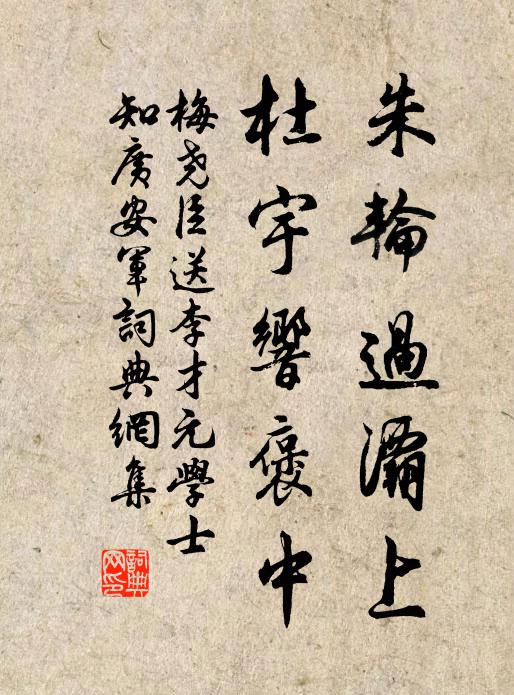 朱輪過灞上
杜宇響褒中
梅堯臣送李才元學士
知廣安軍詞典網集
詞典
网印